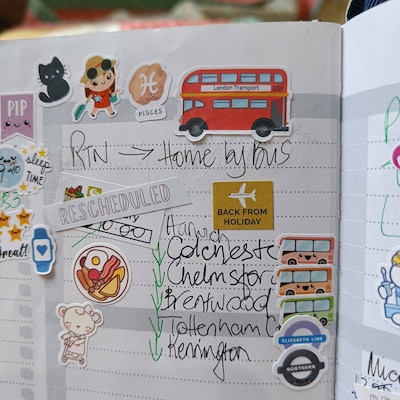 PIP
PISCES
London Transport
RTN → Home by Bus
sleep
TIME
RESCHEDULED
BACK FROM
HOLIDAY
Harwich
Colcheste
Chelmsfor
Brentwood
Tottenham C
Kennington
great!
ELIZABETH LINE
NORTHERN